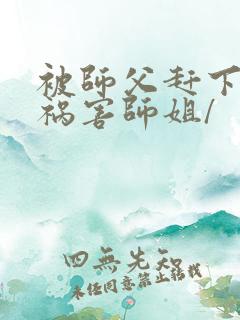 被師父赶下
祸害師姐/
四無先知
未经同意禁止转载